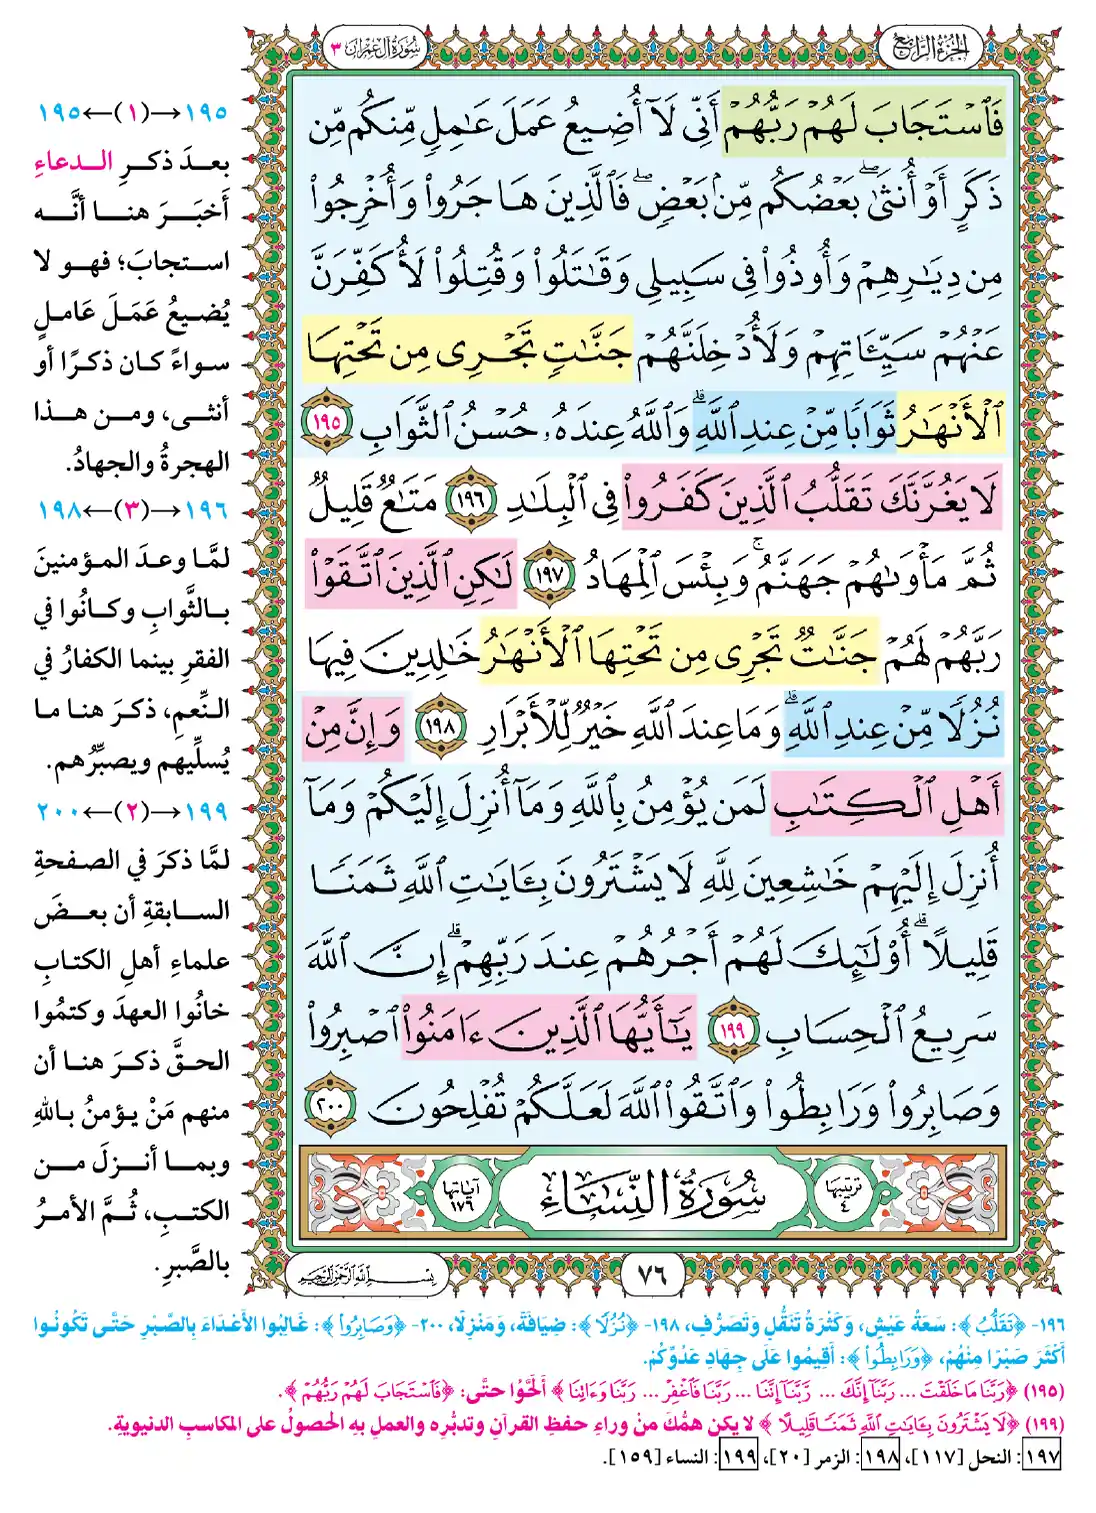 الجزء الرابع
سورة آل عمران ٣
فَٱسْتَجَابَ لَهُمْ رَبُّهُمْ أَنِّى لَآ أُضِيعُ عَمَلَ عَٰمِلٍ مِّنكُم مِّن
ذَكَرٍ أَوْ أُنثَىٰ ۖ بَعْضُكُم مِّنۢ بَعْضٍ ۖ فَٱلَّذِينَ هَاجَرُوا۟ وَأُخْرِجُوا۟
مِن دِيَٰرِهِمْ وَأُوذُوا۟ فِى سَبِيلِى وَقَٰتَلُوا۟ وَقُتِلُوا۟ لَأُكَفِّرَنَّ
عَنْهُمْ سَيِّـَٔاتِهِمْ وَلَأُدْخِلَنَّهُمْ جَنَّٰتٍ تَجْرِى مِن تَحْتِهَا
ٱلْأَنْهَٰرُ ثَوَابًا مِّنْ عِندِ ٱللَّهِ ۗ وَٱللَّهُ عِندَهُۥ حُسْنُ ٱلثَّوَابِ ١٩٥
لَا يَغُرَّنَّكَ تَقَلُّبُ ٱلَّذِينَ كَفَرُوا۟ فِى ٱلْبِلَٰدِ ١٩٦ مَتَٰعٌ قَلِيلٌ
ثُمَّ مَأْوَىٰهُمْ جَهَنَّمُ ۚ وَبِئْسَ ٱلْمِهَادُ ١٩٧ لَٰكِنِ ٱلَّذِينَ ٱتَّقَوْا۟
رَبَّهُمْ لَهُمْ جَنَّٰتٌ تَجْرِى مِن تَحْتِهَا ٱلْأَنْهَٰرُ خَٰلِدِينَ فِيهَا
نُزُلًا مِّنْ عِندِ ٱللَّهِ ۗ وَمَا عِندَ ٱللَّهِ خَيْرٌ لِّلْأَبْرَارِ ١٩٨ وَإِنَّ مِنْ
أَهْلِ ٱلْكِتَٰبِ لَمَن يُؤْمِنُ بِٱللَّهِ وَمَآ أُنزِلَ إِلَيْكُمْ وَمَآ
أُنزِلَ إِلَيْهِمْ خَٰشِعِينَ لِلَّهِ لَا يَشْتَرُونَ بِـَٔايَٰتِ ٱللَّهِ ثَمَنًا
قَلِيلًا ۗ أُو۟لَٰٓئِكَ لَهُمْ أَجْرُهُمْ عِندَ رَبِّهِمْ ۗ إِنَّ ٱللَّهَ
سَرِيعُ ٱلْحِسَابِ ١٩٩ يَٰٓأَيُّهَا ٱلَّذِينَ ءَامَنُوا۟ ٱصْبِرُوا۟
وَصَابِرُوا۟ وَرَابِطُوا۟ وَٱتَّقُوا۟ ٱللَّهَ لَعَلَّكُمْ تُفْلِحُونَ ٢٠٠
ترتيبها ٤
سُورَةُ النِّسَاءِ
آياتها ١٧٦
٧٦
بسم الله الرحمن الرحيم
١٩٥→(١)←١٩٥
بعدَ ذكرِ الدعاءِ
أَخبَرَ هنا أنَّه
استجابَ؛ فهو لا
يُضيعُ عَمَلَ عَاملٍ
سواءً كان ذكرًا أو
أنثى، ومن هذا
الهجرةُ والجهادُ.
١٩٦→(٣)←١٩٨
لمَّا وعدَ المؤمنينَ
بالثَّوابِ وكانُوا في
الفقرِ بينما الكفارُ في
النِّعمِ، ذكرَ هنا ما
يُسلِّيهم ويصبِّرُهم.
١٩٩→(٢)←٢٠٠
لمَّا ذكرَ في الصفحةِ
السابقةِ أن بعضَ
علماءِ أهلِ الكتابِ
خانُوا العهدَ وكتمُوا
الحقَّ ذكرَ هنا أن
منهم مَنْ يؤمنُ باللهِ
وبما أنزلَ من
الكتبِ، ثُمَّ الأمرُ
بالصَّبرِ.
١٩٦- ﴿تَقَلُّبُ﴾: سَعَةُ عَيْشٍ، وَكَثْرَةُ تَنَقُّلٍ وَتَصَرُّفٍ، ١٩٨- ﴿نُزُلًا﴾: ضِيَافَةً، وَمَنْزِلًا، ٢٠٠- ﴿وَصَابِرُوا۟﴾: غَالِبُوا الأَعْدَاءَ بِالصَّبْرِ حَتَّى تَكُونُوا
أَكْثَرَ صَبْرًا مِنْهُمْ، ﴿وَرَابِطُوا۟﴾: أَقِيمُوا عَلَى جِهَادِ عَدُوِّكُمْ.
(١٩٥) ﴿رَبَّنَا مَا خَلَقْتَ ... رَبَّنَآ إِنَّكَ ... رَّبَّنَآ إِنَّنَا ... رَبَّنَا فَٱغْفِرْ ... رَبَّنَا وَءَاتِنَا﴾ أَلَحُّوا حتَّى: ﴿فَٱسْتَجَابَ لَهُمْ رَبُّهُمْ﴾.
(١٩٩) ﴿لَا يَشْتَرُونَ بِـَٔايَٰتِ ٱللَّهِ ثَمَنًا قَلِيلًا﴾ لا يكن همُّكَ منْ وراءِ حفظِ القرآنِ وتدبُّرِه والعملِ بهِ الحصولُ على المكاسبِ الدنيويةِ.
١٩٧: النحل [١١٧]، ١٩٨: الزمر [٢٠]، ١٩٩: النساء [١٥٩].